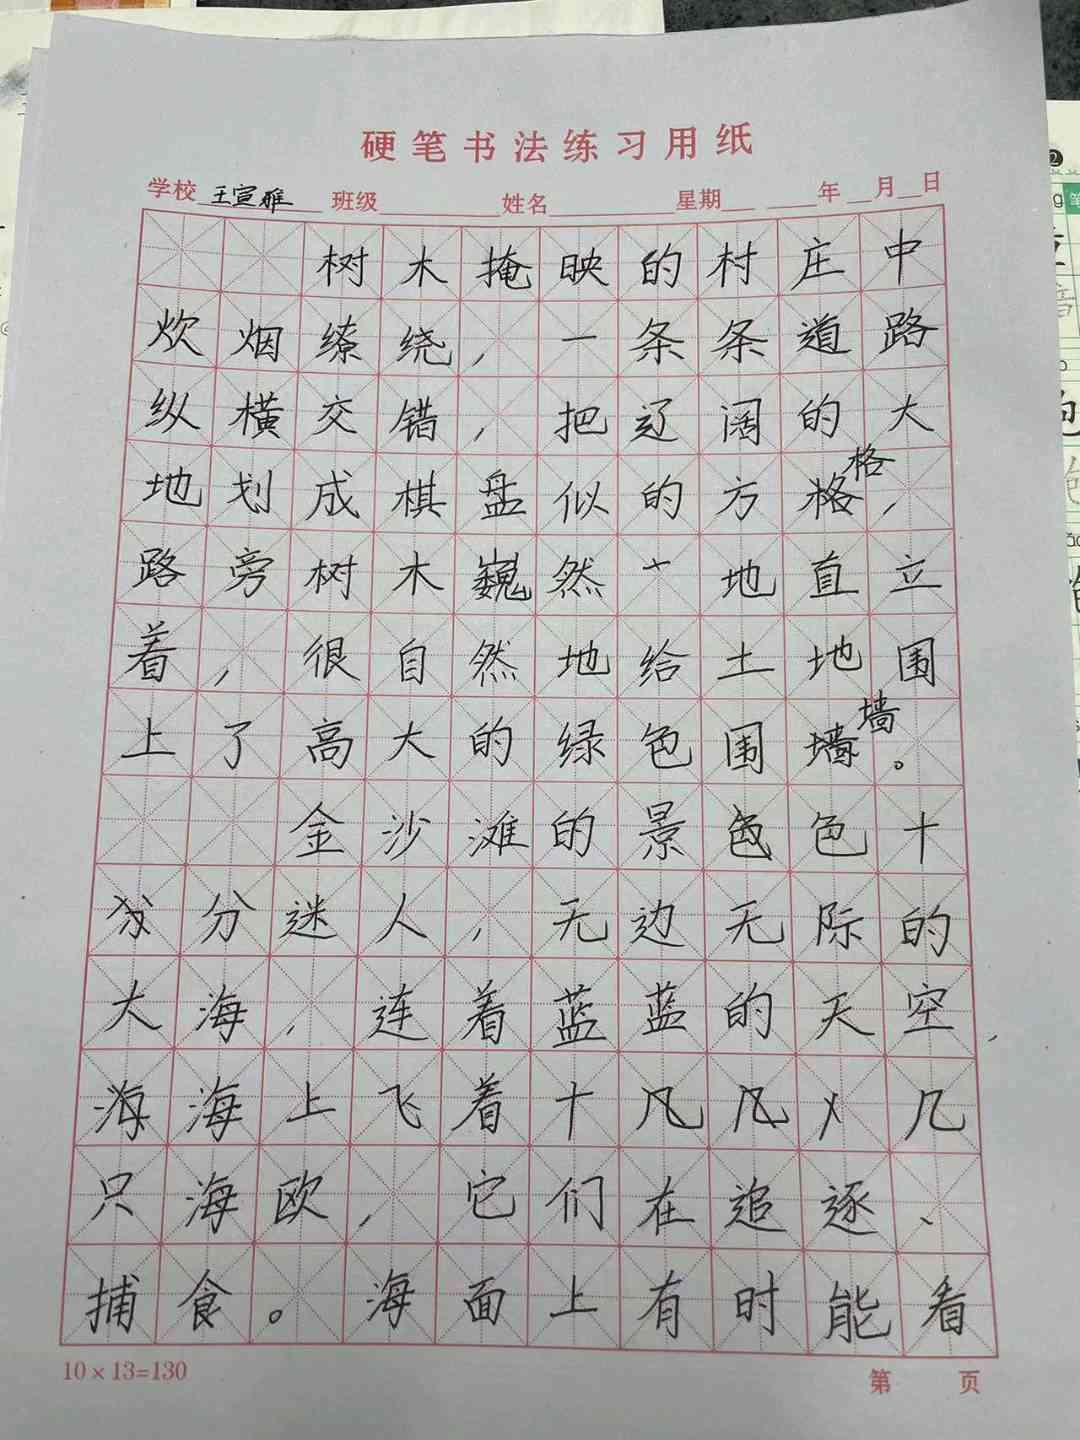 硬笔书法练习用纸
学校 王宣雅 班级 姓名 星期 年 月 日
树木掩映的村庄中
炊烟缭绕，一条条道路
纵横交错，把辽阔的大
格
地划成棋盘似的方格，
路旁树木巍然 地直立
着，很自然地给土地围
墙
上了高大的绿色围墙。
金沙滩的景色色十
分分迷人，无边无际的
大海，连着蓝蓝的天空，
海海上飞着十几几 几
只海欧，它们在追逐、
捕食。海面上有时能看
10×13=130
第 页